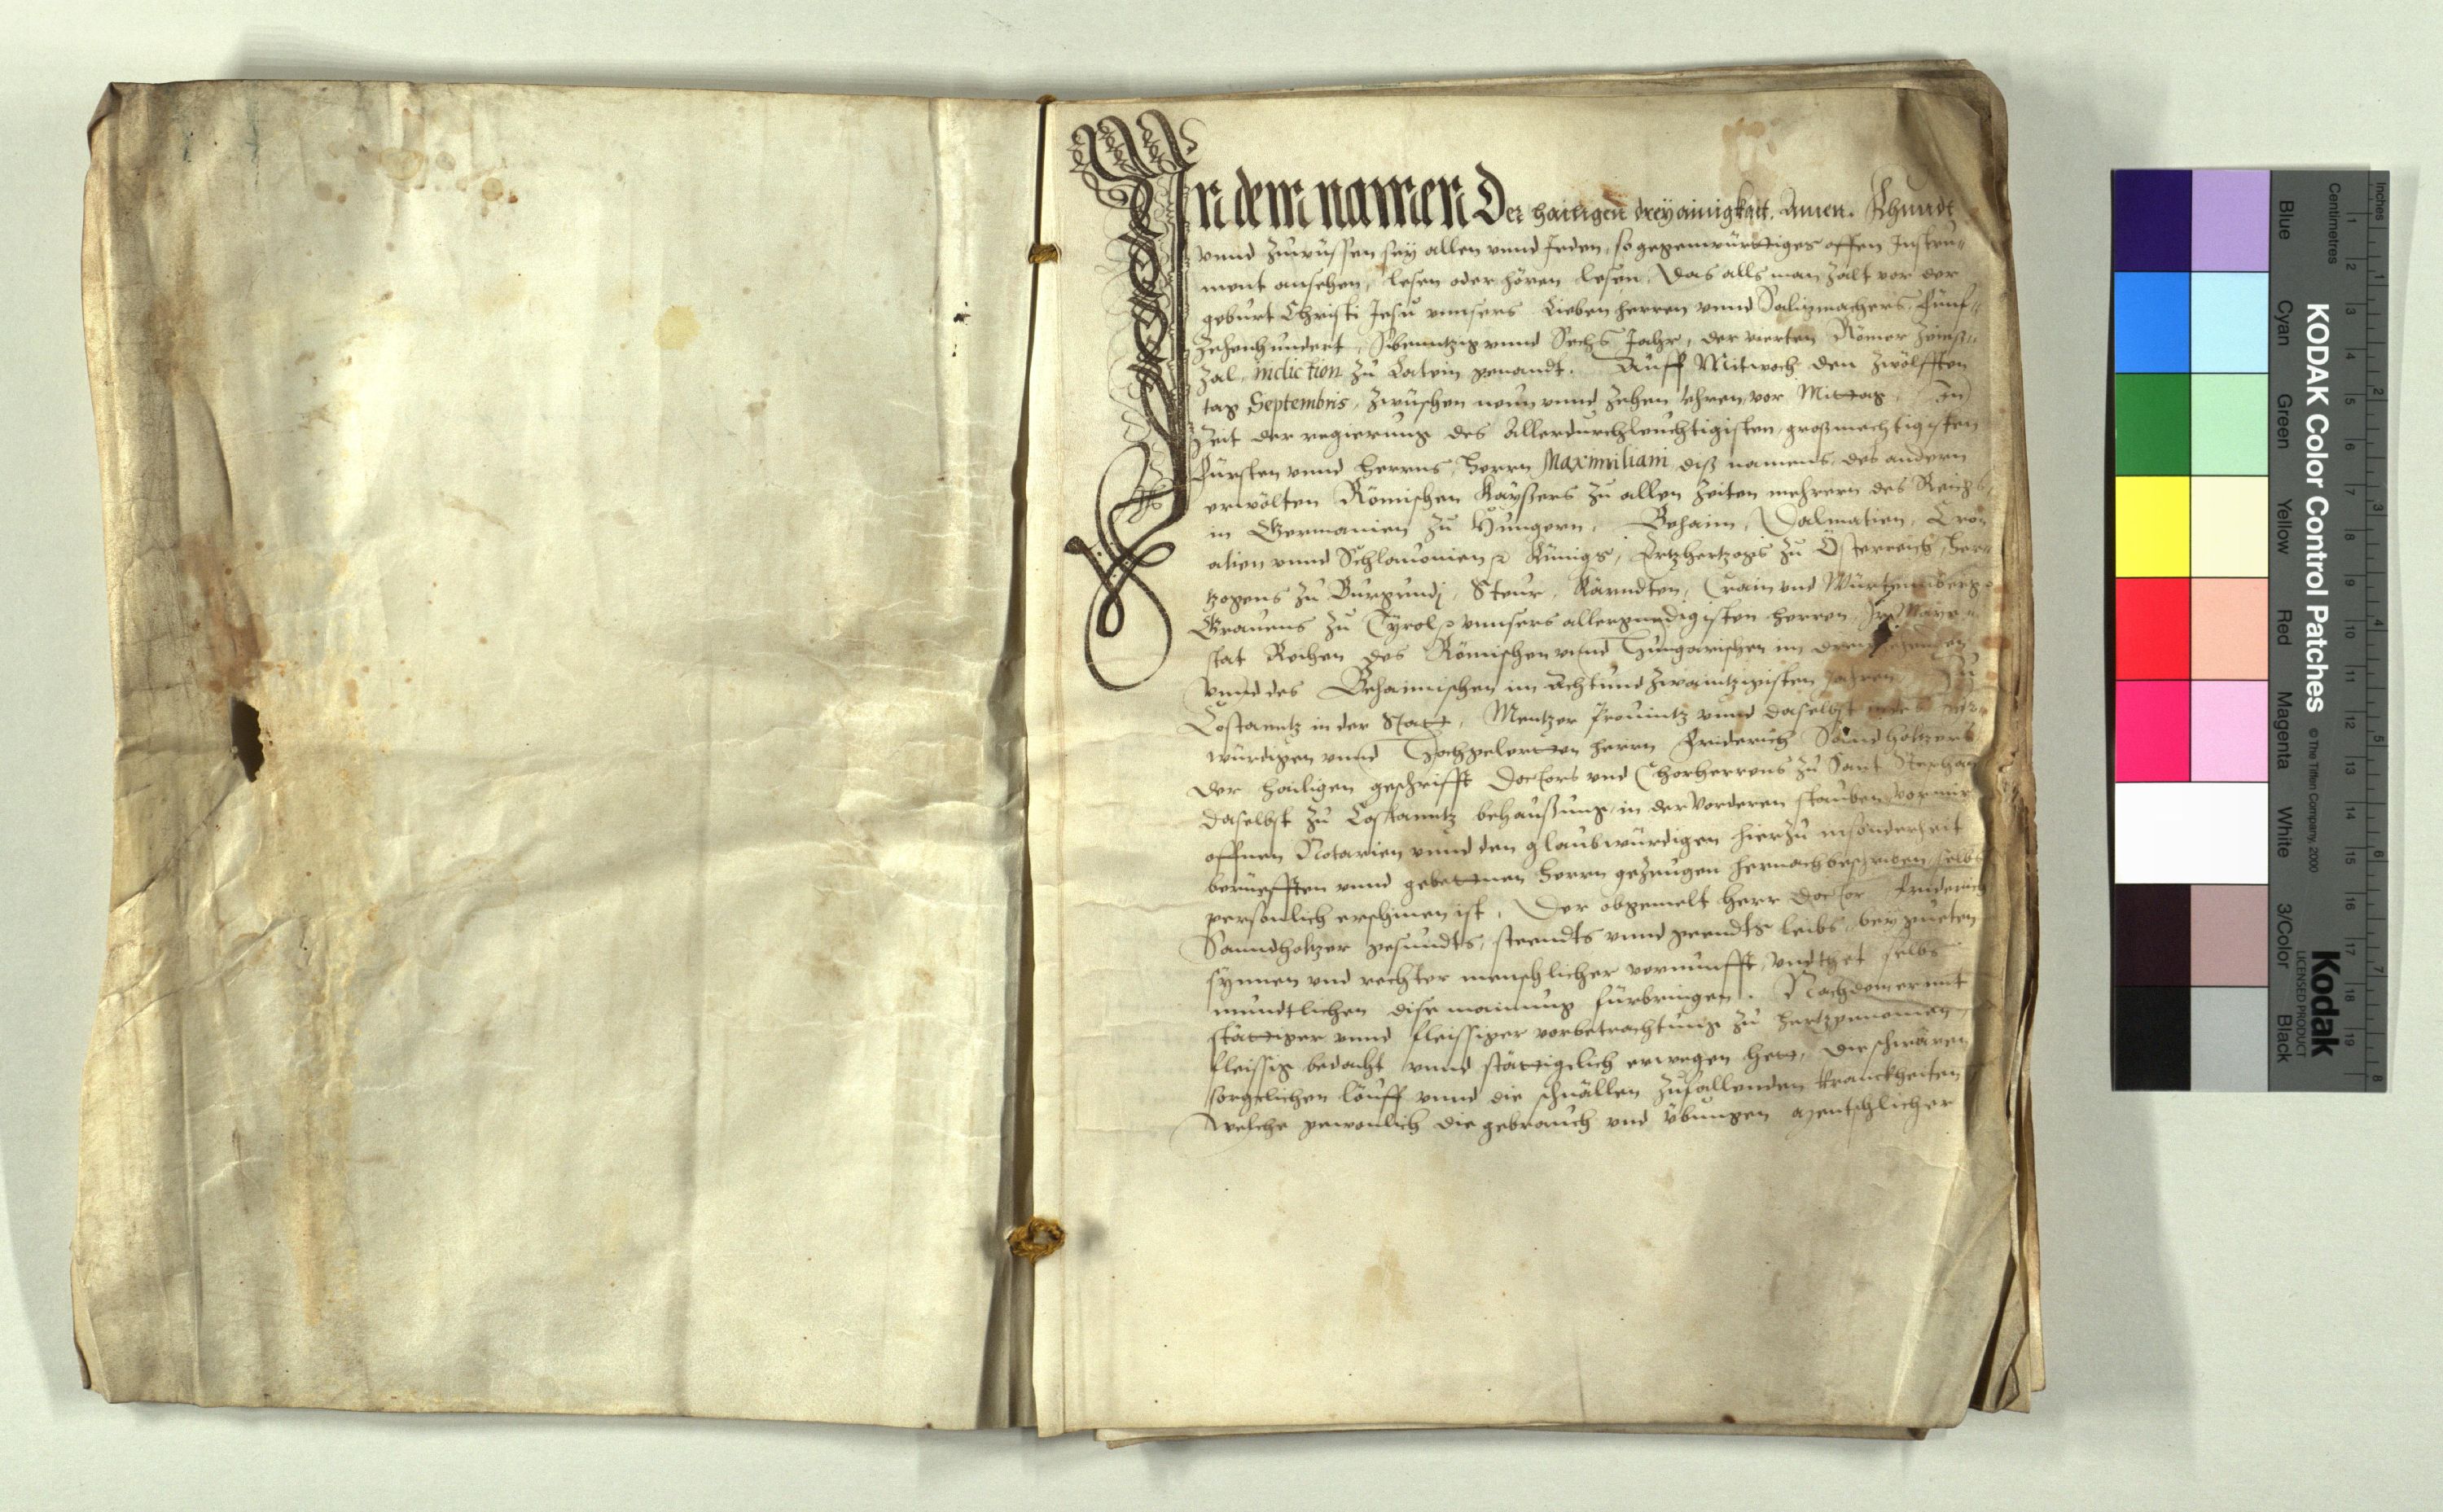 In dem namen Der hailigen dreyainigkait. Amen. Khundt
vnnd zuwüssen sey allen vnnd Jeden, so gegenwürttiges offen Instru-
ment ansehen, lesen oder hören lesen, Das alls man zalt von der
geburt Christi Jesu vnnsers Lieben herren vnnd Säligmachers, Fünf-
zehenhundert, Sibenntzig vnnd Sechs Jahr, der vierten Römer Zinß-
zal, indiction zu Latein genandt. Auff Mitwoch den zwölfften
tag Septembris, zwüschen neun vnnd zehen Uhren, vor Mittag, In
Zeit der regierung des Allerdurchleuchtigisten, großmechtigisten
Fürsten vnnd herrns, herrn Maximiliani, diß namens, des andern
erwölten Römischen Kayßers zu allen Zeiten mehrern des Reichs,
in Germanien zu Hungern, Behaim, Dalmatien, Cro-
atien vnnd Schlauonien &c Künigs, Ertzhertzogs zu Österreich, Her-
tzogens zu Burgundj, Steur, Kärndten, Crain vnd Würtemberg &c
Grauens zu Tyrol &c vnnsers allergnedigisten herren, Irer Maye-
stat Reichen des Römischen vnnd Hungarischen im
vnnd des Behaimischen im Achtundzwaintzigisten Jahren, Zu
Costanntz in der Statt, Mentzer Prouintz vnnd daselbst
würdigen vnnd Hochgelertten herrn Friderich Sandholzers
der hailigen geschrifft Doctors vnd Chorherrens zu Sant Stephan
daselbst zu Costanntz behaußung, in der Vorderen stauben, vor mir
offnen Notarien vnnd den glaubwürdigen hierzu insonderheit
berüefften vnnd gebettnen herrn gezeugen hernachbeschriben, selbs
personlich erschinen ist, Der obgemelt herr Doctor Friderich
Sanndholtzer gesundts, steendts vnnd geendts leibs, bey gueten
synnen vnd rechter menschlicher vernunfft, Vnd thet selbs
mundtlichen dise mainung fürbringen. Nachdem er mit
stattiger vnnd fleissiger vorbetrachtung zu hertzgenomen,
fleissig bedacht vnnd stättigelich erwegen hett, die schwären
sorgelichen löuff vnnd die schnällen zufallenden kranckheiten
Welche gewonlich die gebreuch vnd übungen mentschlicher
Inches
Centimetres
KODAK Color Control Patches
© The Tiffen Company, 2000
Kodak
LICENSED PRODUCT
Blue
Cyan
Green
Yellow
Red
Magenta
White
3/Color
Black
1 2 3 4 5 6 7 8 9 10 11 12 13 14 15 16 17 18 19
1 2 3 4 5 6 7 8